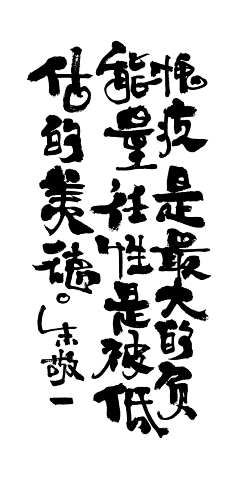 愧疚是最大的负
能量任性是被低
估的美德。
朱敬一